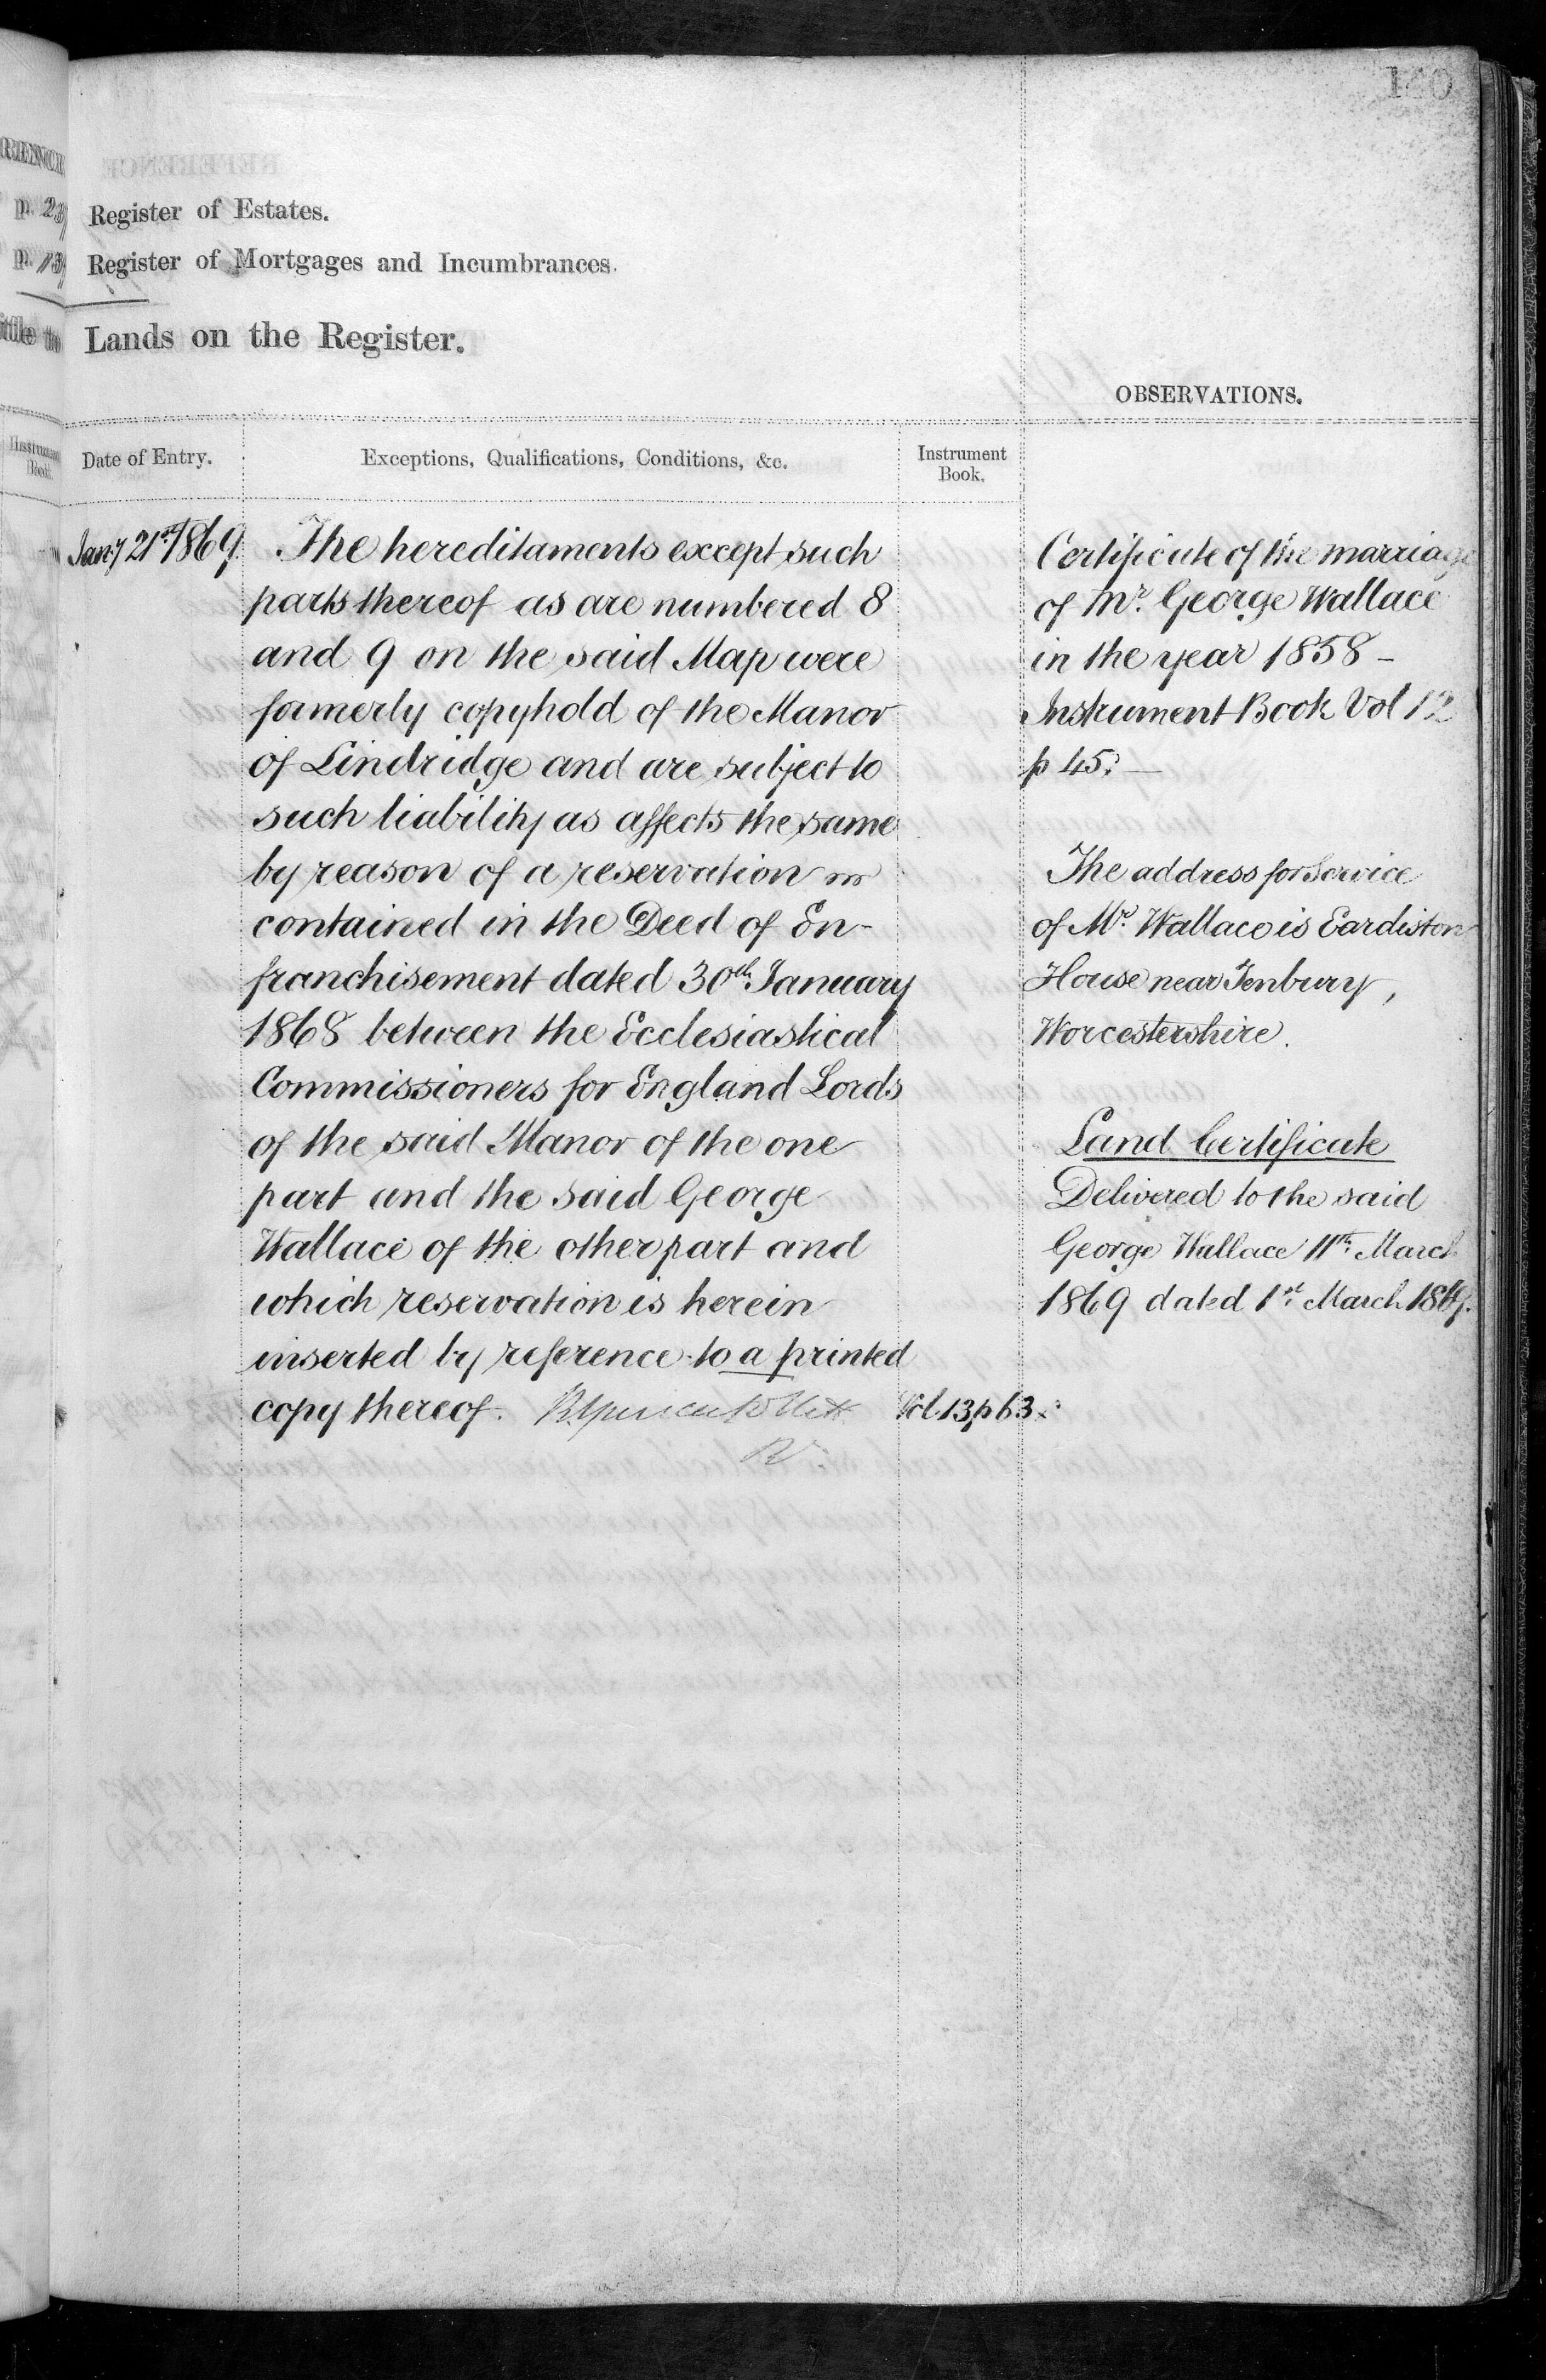 140
Register of Estates.
Register of Mortgages and Incumbrances.
Lands on the Register.
OBSERVATIONS.
Date of Entry.
Exceptions, Qualifications, Conditions, &c.
Instrument
Book.
Jany 21st 1869
The hereditaments except such
parts thereof as are numbered 8
and 9 on the said Map were
formerly copyhold of the Manor
of Lindridge and are subject to
such liability as affects the same
by reason of a reservation
contained in the Deed of En-
franchisement dated 30th January
1868 between the Ecclesiastical
Commissioners for England Lords
of the said Manor of the one
part and the said George
Wallace of the other part and
which reservation is herein
inserted by reference to a printed
copy thereof.
Vol. 13, p 63.
Certificate of the marriage
of Mr. George Wallace
in the year 1858 -
Instrument Book Vol 12
p 45. —
The address for Service
of Mr. Wallace is Eardiston
House near Tenbury,
Worcestershire.
Land Certificate
Delivered to the said
George Wallace 11th March
1869 dated 1st March 1869.